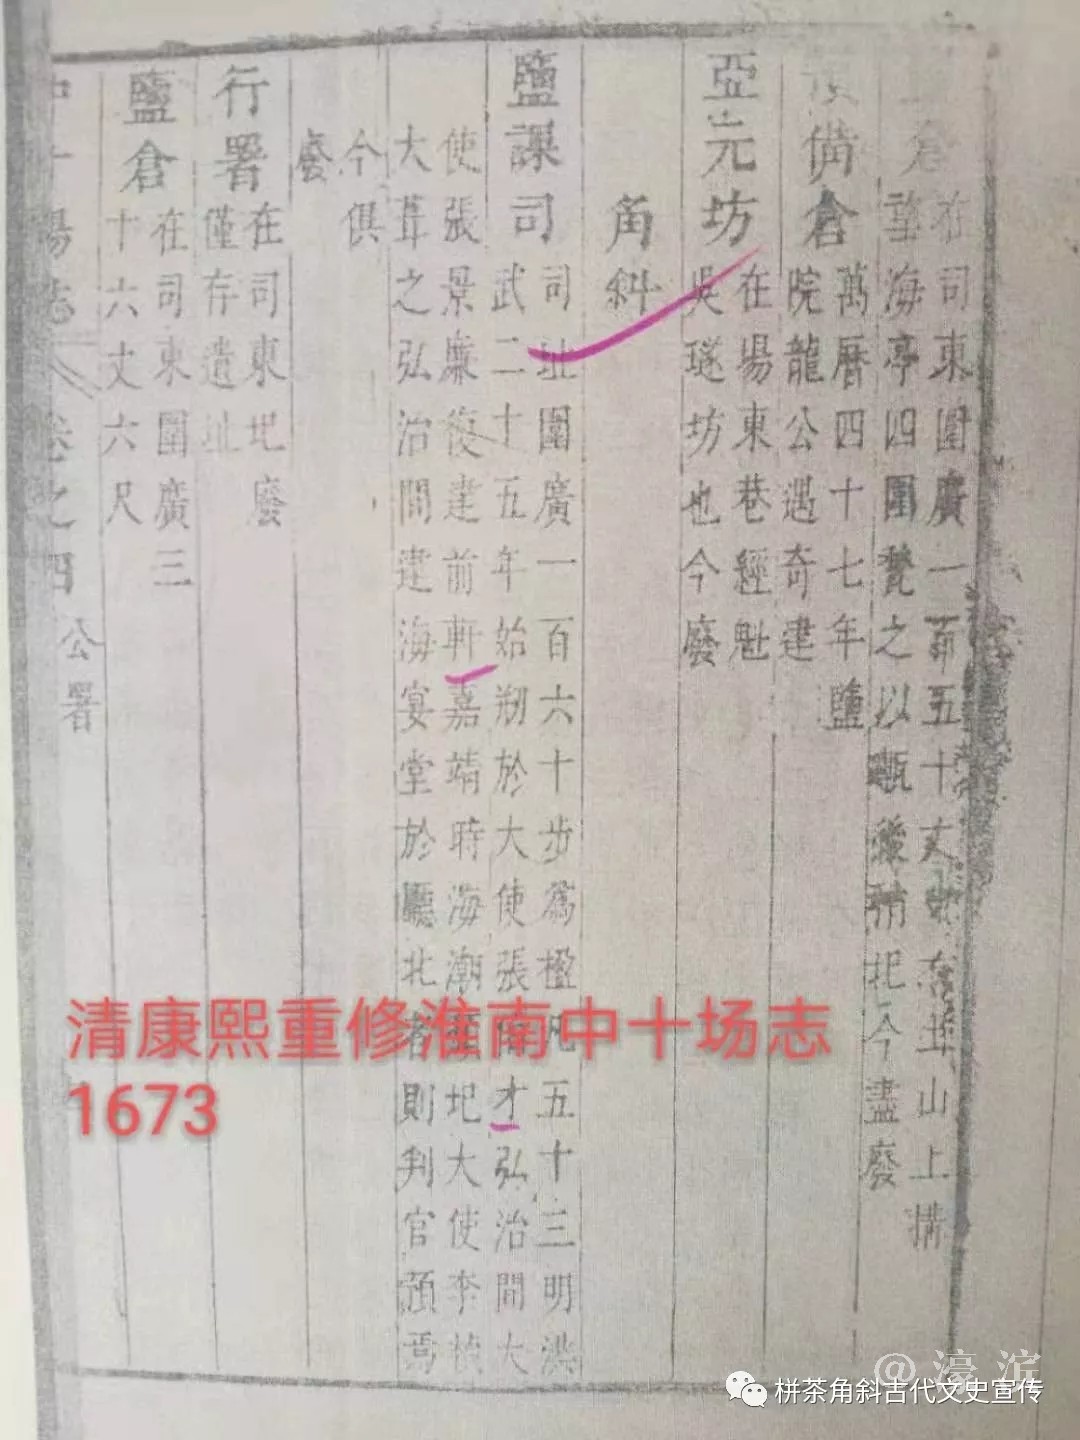 倉
在司東圍廣一百五十丈
山上搆
望海亭四圍甃之以甎後稍圮今盡廢
備倉
萬曆四十七年鹽
院龍公遇奇建
亞元坊
在場東巷經魁
吳璲坊也今廢
角斜
鹽課司
司址圍廣一百六十步為楹凡五十三明洪
武二十五年始剏於大使張才弘治間大
使張景廉復建前軒嘉靖時海潮圮大使李楨
大葺之弘治間建海宴堂於廳北者則判官預焉
今俱
廢
行署
在司東圮廢
僅存遺址
鹽倉
在司東圍廣三
十六丈六尺
十場志
卷之四
公署
清康熙重修淮南中十场志
1673
@濠滨
栟茶角斜古代文史宣传